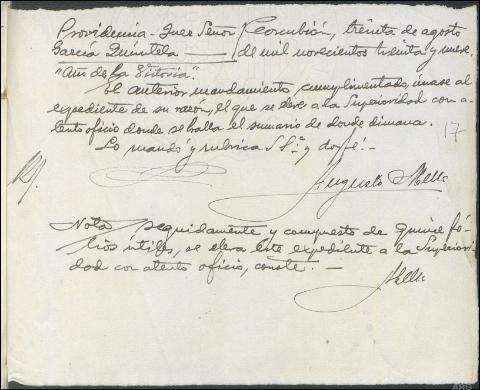 Providencia - Juez Señor Corcubión, treinta de agosto
García Quintela — de mil novecientos treinta y nueve.
"Año de la Victoria".
El anterior mandamiento cumplimentado, únase al
expediente de su razón, el que se eleve a la Superioridad con a-
tento oficio donde se halla el sumario de donde dimana.
Lo mandó y rubrica S Sª y doy fé.-
17
Augusto
Nota Seguidamente y compuesto de quince fó-
lios útiles, se eleva este expediente a la Superiori-
dad con atento oficio, conste. -